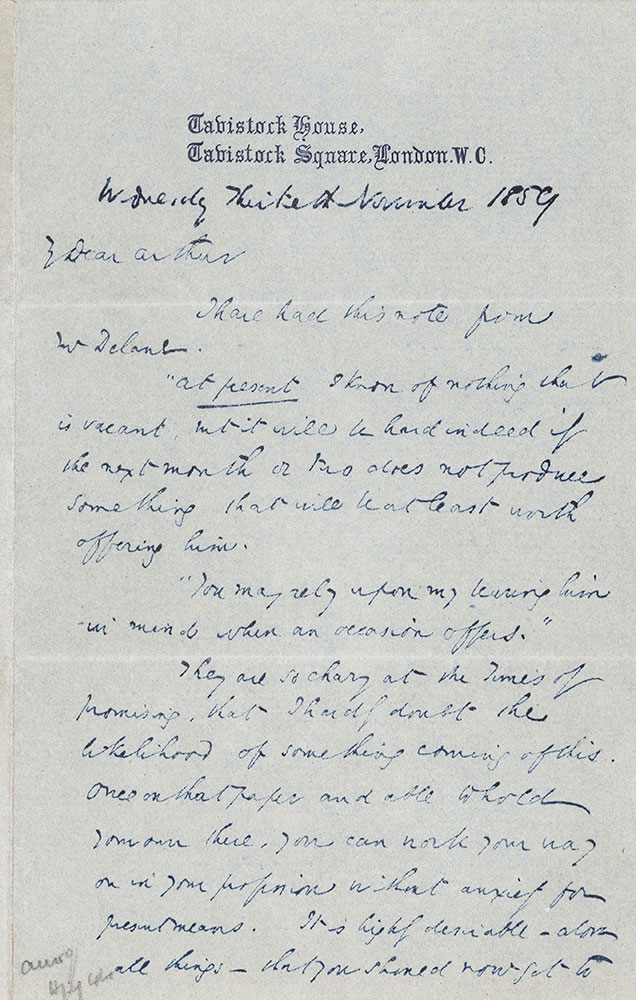 Tavistock House,
Tavistock Square, London. W. C.
Wednesday Thirtieth November 1859
My Dear Arthur
I have had this note from
Mr Delane.
"At present I know of nothing that
is vacant, but it will be hard indeed if
the next month or two does not produce
something that will be at least worth
offering him.
"You may rely upon my bearing him
in mind when an occasion offers."
They are so chary at the Times of
promising, that I hardly doubt the
likelihood of something coming of this.
Once on that paper and able to hold
your own there, you can work your way
on in your profession without anxiety for
present means. It is highly desirable – above
all things – that you should now get to